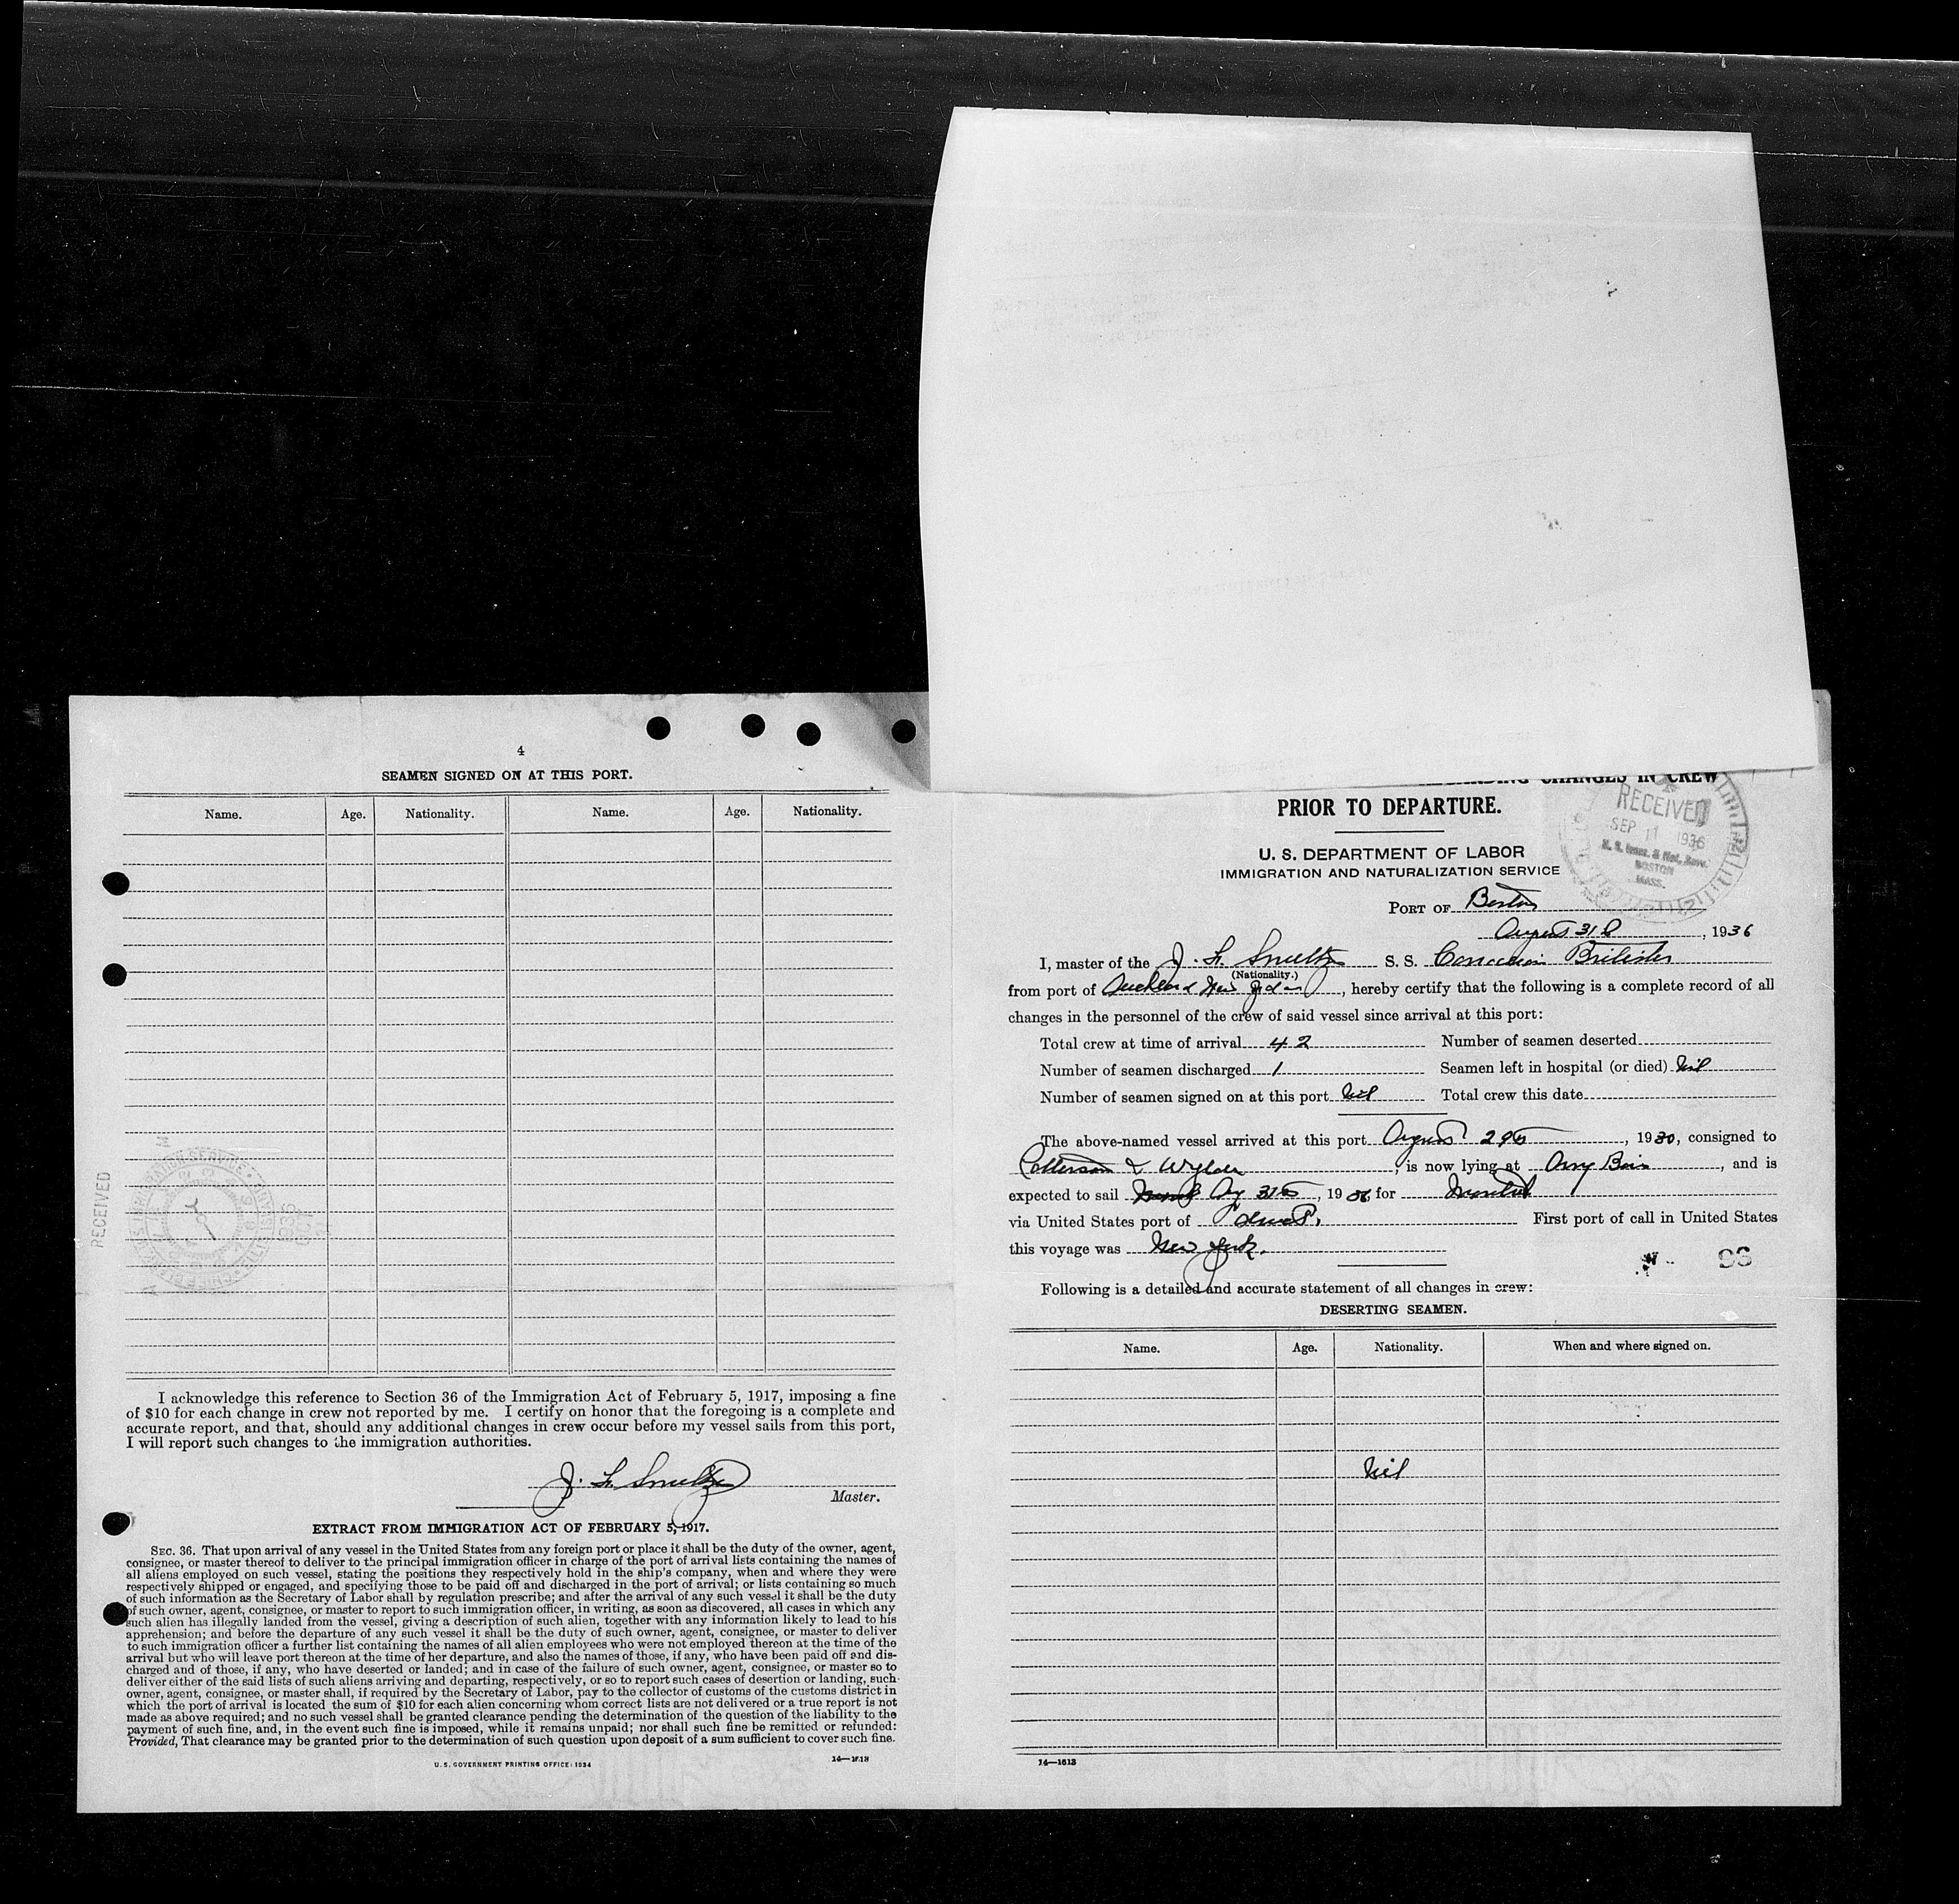 4
SEAMEN SIGNED ON AT THIS PORT.
Name. Age. Nationality. Name. Age. Nationality.
RECEIVED
I acknowledge this reference to Section 36 of the Immigration Act of February 5, 1917, imposing a fine
of $10 for each change in crew not reported by me. I certify on honor that the foregoing is a complete and
accurate report, and that, should any additional changes in crew occur before my vessel sails from this port,
I will report such changes to the immigration authorities.
Master.
EXTRACT FROM IMMIGRATION ACT OF FEBRUARY 5, 1917.
SEC. 36. That upon arrival of any vessel in the United States from any foreign port or place it shall be the duty of the owner, agent,
consignee, or master thereof to deliver to the principal immigration officer in charge of the port of arrival lists containing the names of
all aliens employed on such vessel, stating the positions they respectively hold in the ship's company, when and where they were
respectively shipped or engaged, and specifying those to be paid off and discharged in the port of arrival; or lists containing so much
of such information as the Secretary of Labor shall by regulation prescribe; and after the arrival of any such vessel it shall be the duty
of such owner, agent, consignee, or master to report to such immigration officer, in writing, as soon as discovered, all cases in which any
such alien has illegally landed from the vessel, giving a description of such alien, together with any information likely to lead to his
apprehension; and before the departure of any such vessel it shall be the duty of such owner, agent, consignee, or master to deliver
to such immigration officer a further list containing the names of all alien employees who were not employed thereon at the time of the
arrival but who will leave port thereon at the time of her departure, and also the names of those, if any, who have been paid off and dis-
charged and of those, if any, who have deserted or landed; and in case of the failure of such owner, agent, consignee, or master so to
deliver either of the said lists of such aliens arriving and departing, respectively, or so to report such cases of desertion or landing, such
owner, agent, consignee, or master shall, if required by the Secretary of Labor, pay to the collector of customs of the customs district in
which the port of arrival is located the sum of $10 for each alien concerning whom correct lists are not delivered or a true report is not
made as above required; and no such vessel shall be granted clearance pending the determination of the question of the liability to the
payment of such fine, and, in the event such fine is imposed, while it remains unpaid; nor shall such fine be remitted or refunded:
Provided, That clearance may be granted prior to the determination of such question upon deposit of a sum sufficient to cover such fine.
U. S. GOVERNMENT PRINTING OFFICE: 1934
CHANGES IN CREW
PRIOR TO DEPARTURE.
RECEIVED
SEP 11 1936
BOSTON
MASS.
U. S. DEPARTMENT OF LABOR
IMMIGRATION AND NATURALIZATION SERVICE
PORT OF Boston
August 31, 1936
I, master of the S. S. Canadian
(Nationality.)
from port of Auckland New, hereby certify that the following is a complete record of all
changes in the personnel of the crew of said vessel since arrival at this port:
Total crew at time of arrival 42 Number of seamen deserted
Number of seamen discharged 1 Seamen left in hospital (or died) Nil
Number of seamen signed on at this port Nil Total crew this date
The above-named vessel arrived at this port August 29, 1930, consigned to
Patterson & Wylde, is now lying at Army Base, and is
expected to sail Aug 31, 1936 for Montreal
via United States port of direct. First port of call in United States
this voyage was New York.
96
Following is a detailed and accurate statement of all changes in crew:
DESERTING SEAMEN.
Name. Age. Nationality. When and where signed on.
Nil
14—1613